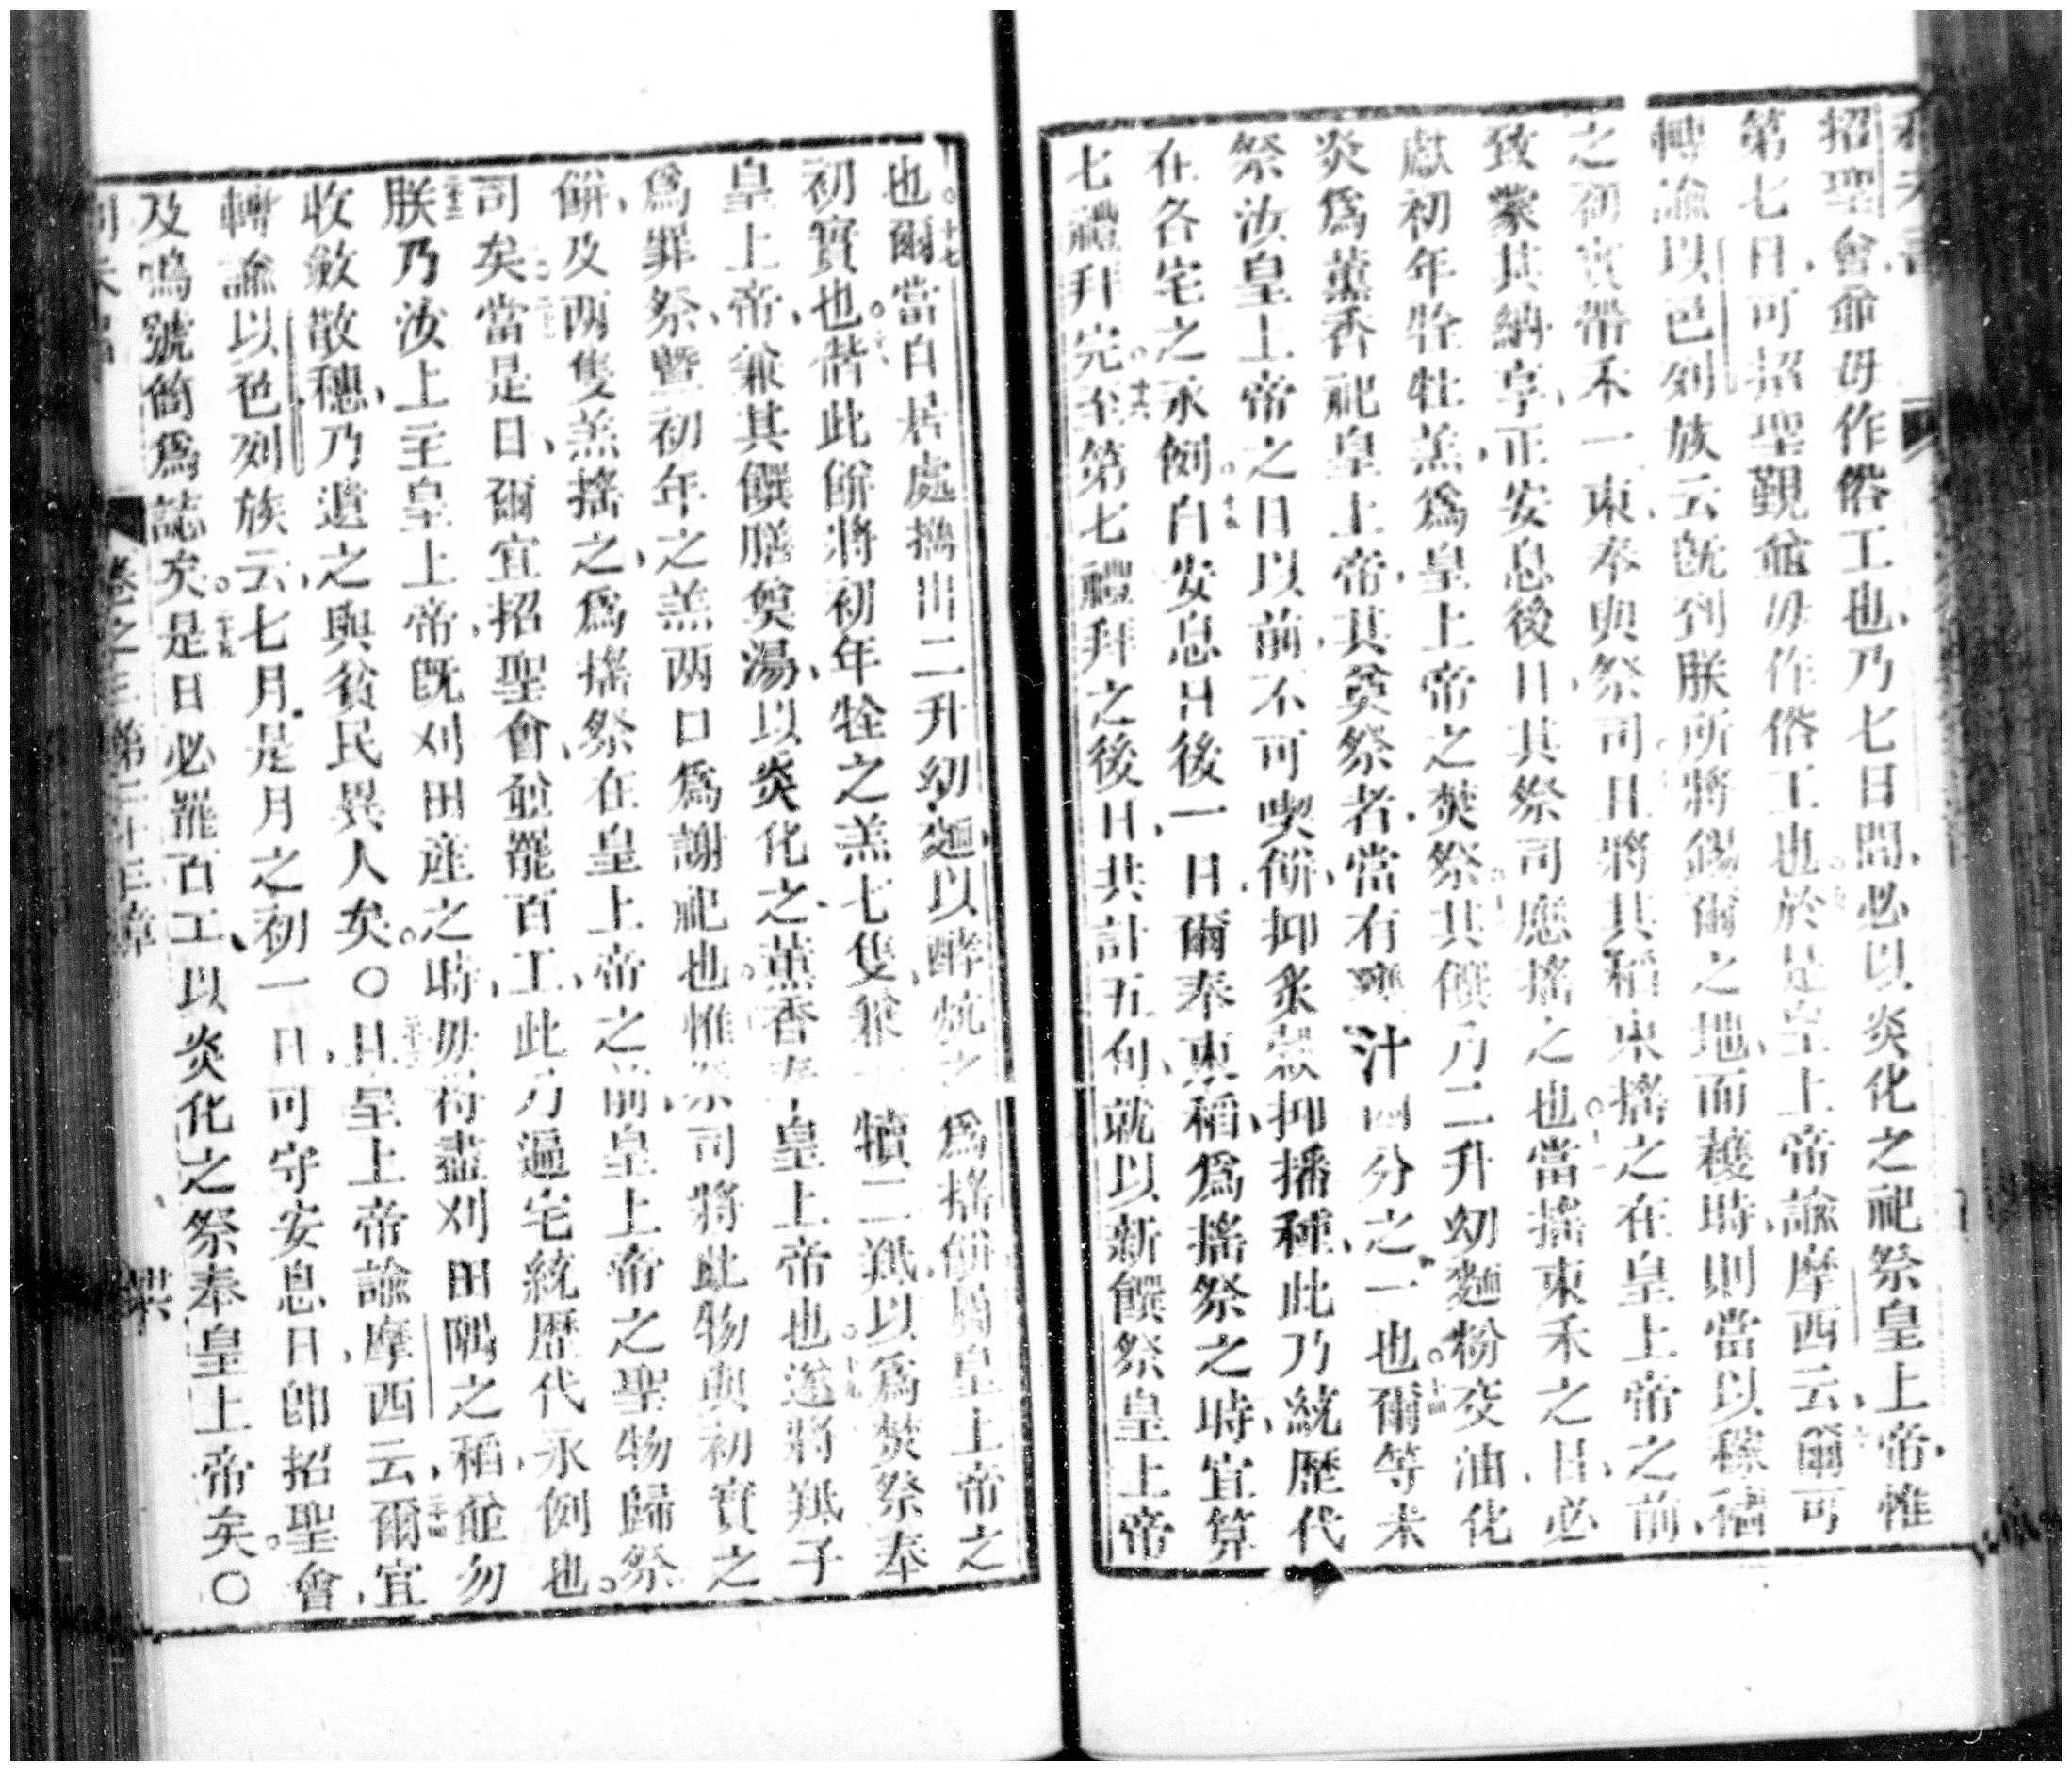 招聖會、並毋作俗工也、乃七日間、必以炎化之祀祭皇上帝、惟
第七日、可招聖覲、並毋作俗工也。於是皇上帝諭摩西云、爾可
轉諭以色列族云、旣到朕所將錫爾之地、而穫時、則當以稼穡
之初實帶禾一束、奉與祭司、且將其稻束搖之在皇上帝之前、
致蒙其納享、正安息後日其祭司應搖之也。當搖束禾之日、必
獻初年牷牡羔爲皇上帝之焚祭。其饌乃二升幼麵粉交油化
炎爲薰香祀皇上帝、其奠祭者、當有 汁四分之一也。十四爾等未
祭汝皇上帝之日以前、不可喫餅、抑炙 抑播種、此乃統歷代
在各宅之永例。十五自安息日後一日、爾奉束稻、爲搖祭之時、宜算
七禮拜完。十六至第七禮拜之後日、共計五旬、就以新饌祭皇上帝
也。十七爾當自居處攜出二升幼麵、以酵炕之爲搖餅、屬皇上帝之
初實也。十八偕此餅將初年牷之羔七隻、兼 犢二羝、以爲焚祭奉
皇上帝、兼其饌膳奠湯、以炎化之薰香奉皇上帝也。十九遂將羝子
爲罪祭、曁初年之羔两口爲謝祀也。惟祭司將此物與初實之
餅、及两隻羔搖之、爲搖祭在皇上帝之前、皇上帝之聖物歸祭
司矣。當是日、爾宜招聖會、並罷百工、此乃通宅統歷代永例也。
二十二朕乃汝上主皇上帝、旣刈田產之時、毋得盡刈田隅之稻、並勿
收斂散穗、乃遺之、與貧民異人矣。〇二十三且皇上帝諭摩西云、二十四爾宜
轉諭以色列族云、七月是月之初一日、可守安息日、卽招聖會、
及鳴號筒爲誌矣。二十五是日必罷百工、以炎化之祭奉皇上帝矣。〇
卷之三第二十三章